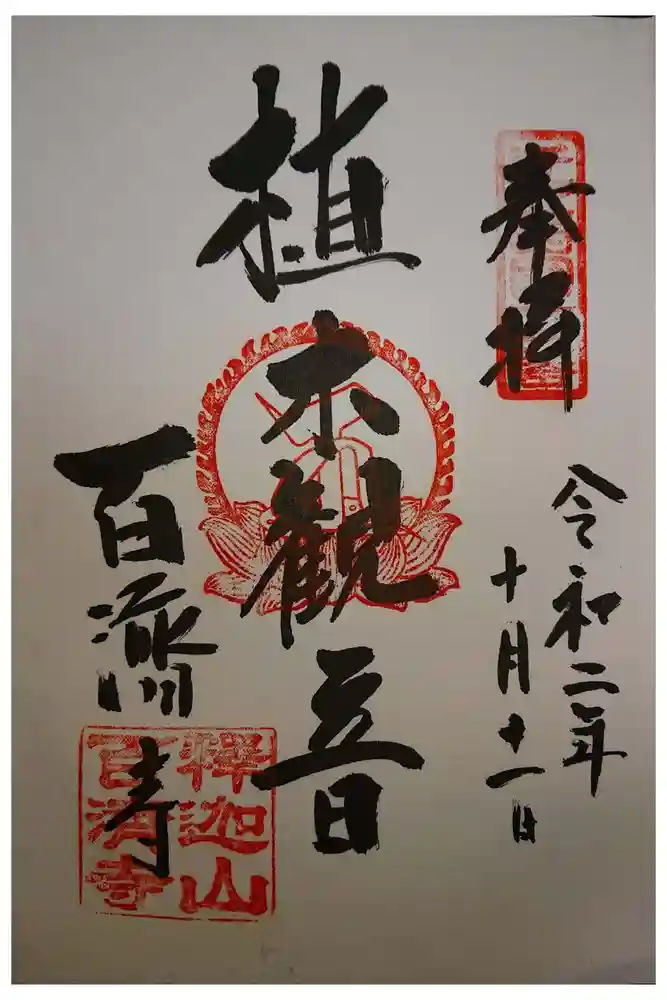 奉拝
令和二年
十月十一日
植木観音
百済寺
釋迦山
百済寺